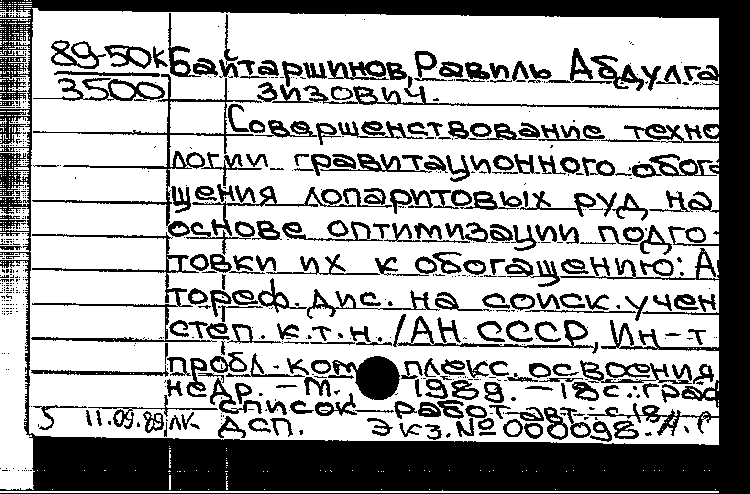 89-50к Байтаршинов, Равиль Абдулга
3500 зизович.
Совершенствование техно
логии гравитационного обога
щения лопаритовых руд на
основе оптимизации подго-
товки их к обогащению: А
тореф. дис. на соиск. учен
степ. к.т.н. /АН СССР, Ин-т
пробл. комплекс. освоения
недр. – М., 1989. – 18 с.: граф
список работ авт.: с. 18
5 11.09.89 лк ДСП. Экз. № 000098.